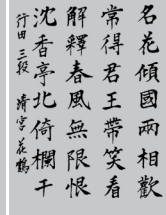 名花傾國兩相歡
常得君王帶笑看
解釋春風無限恨
沈香亭北倚欄干
行田三段 清宮花鶴